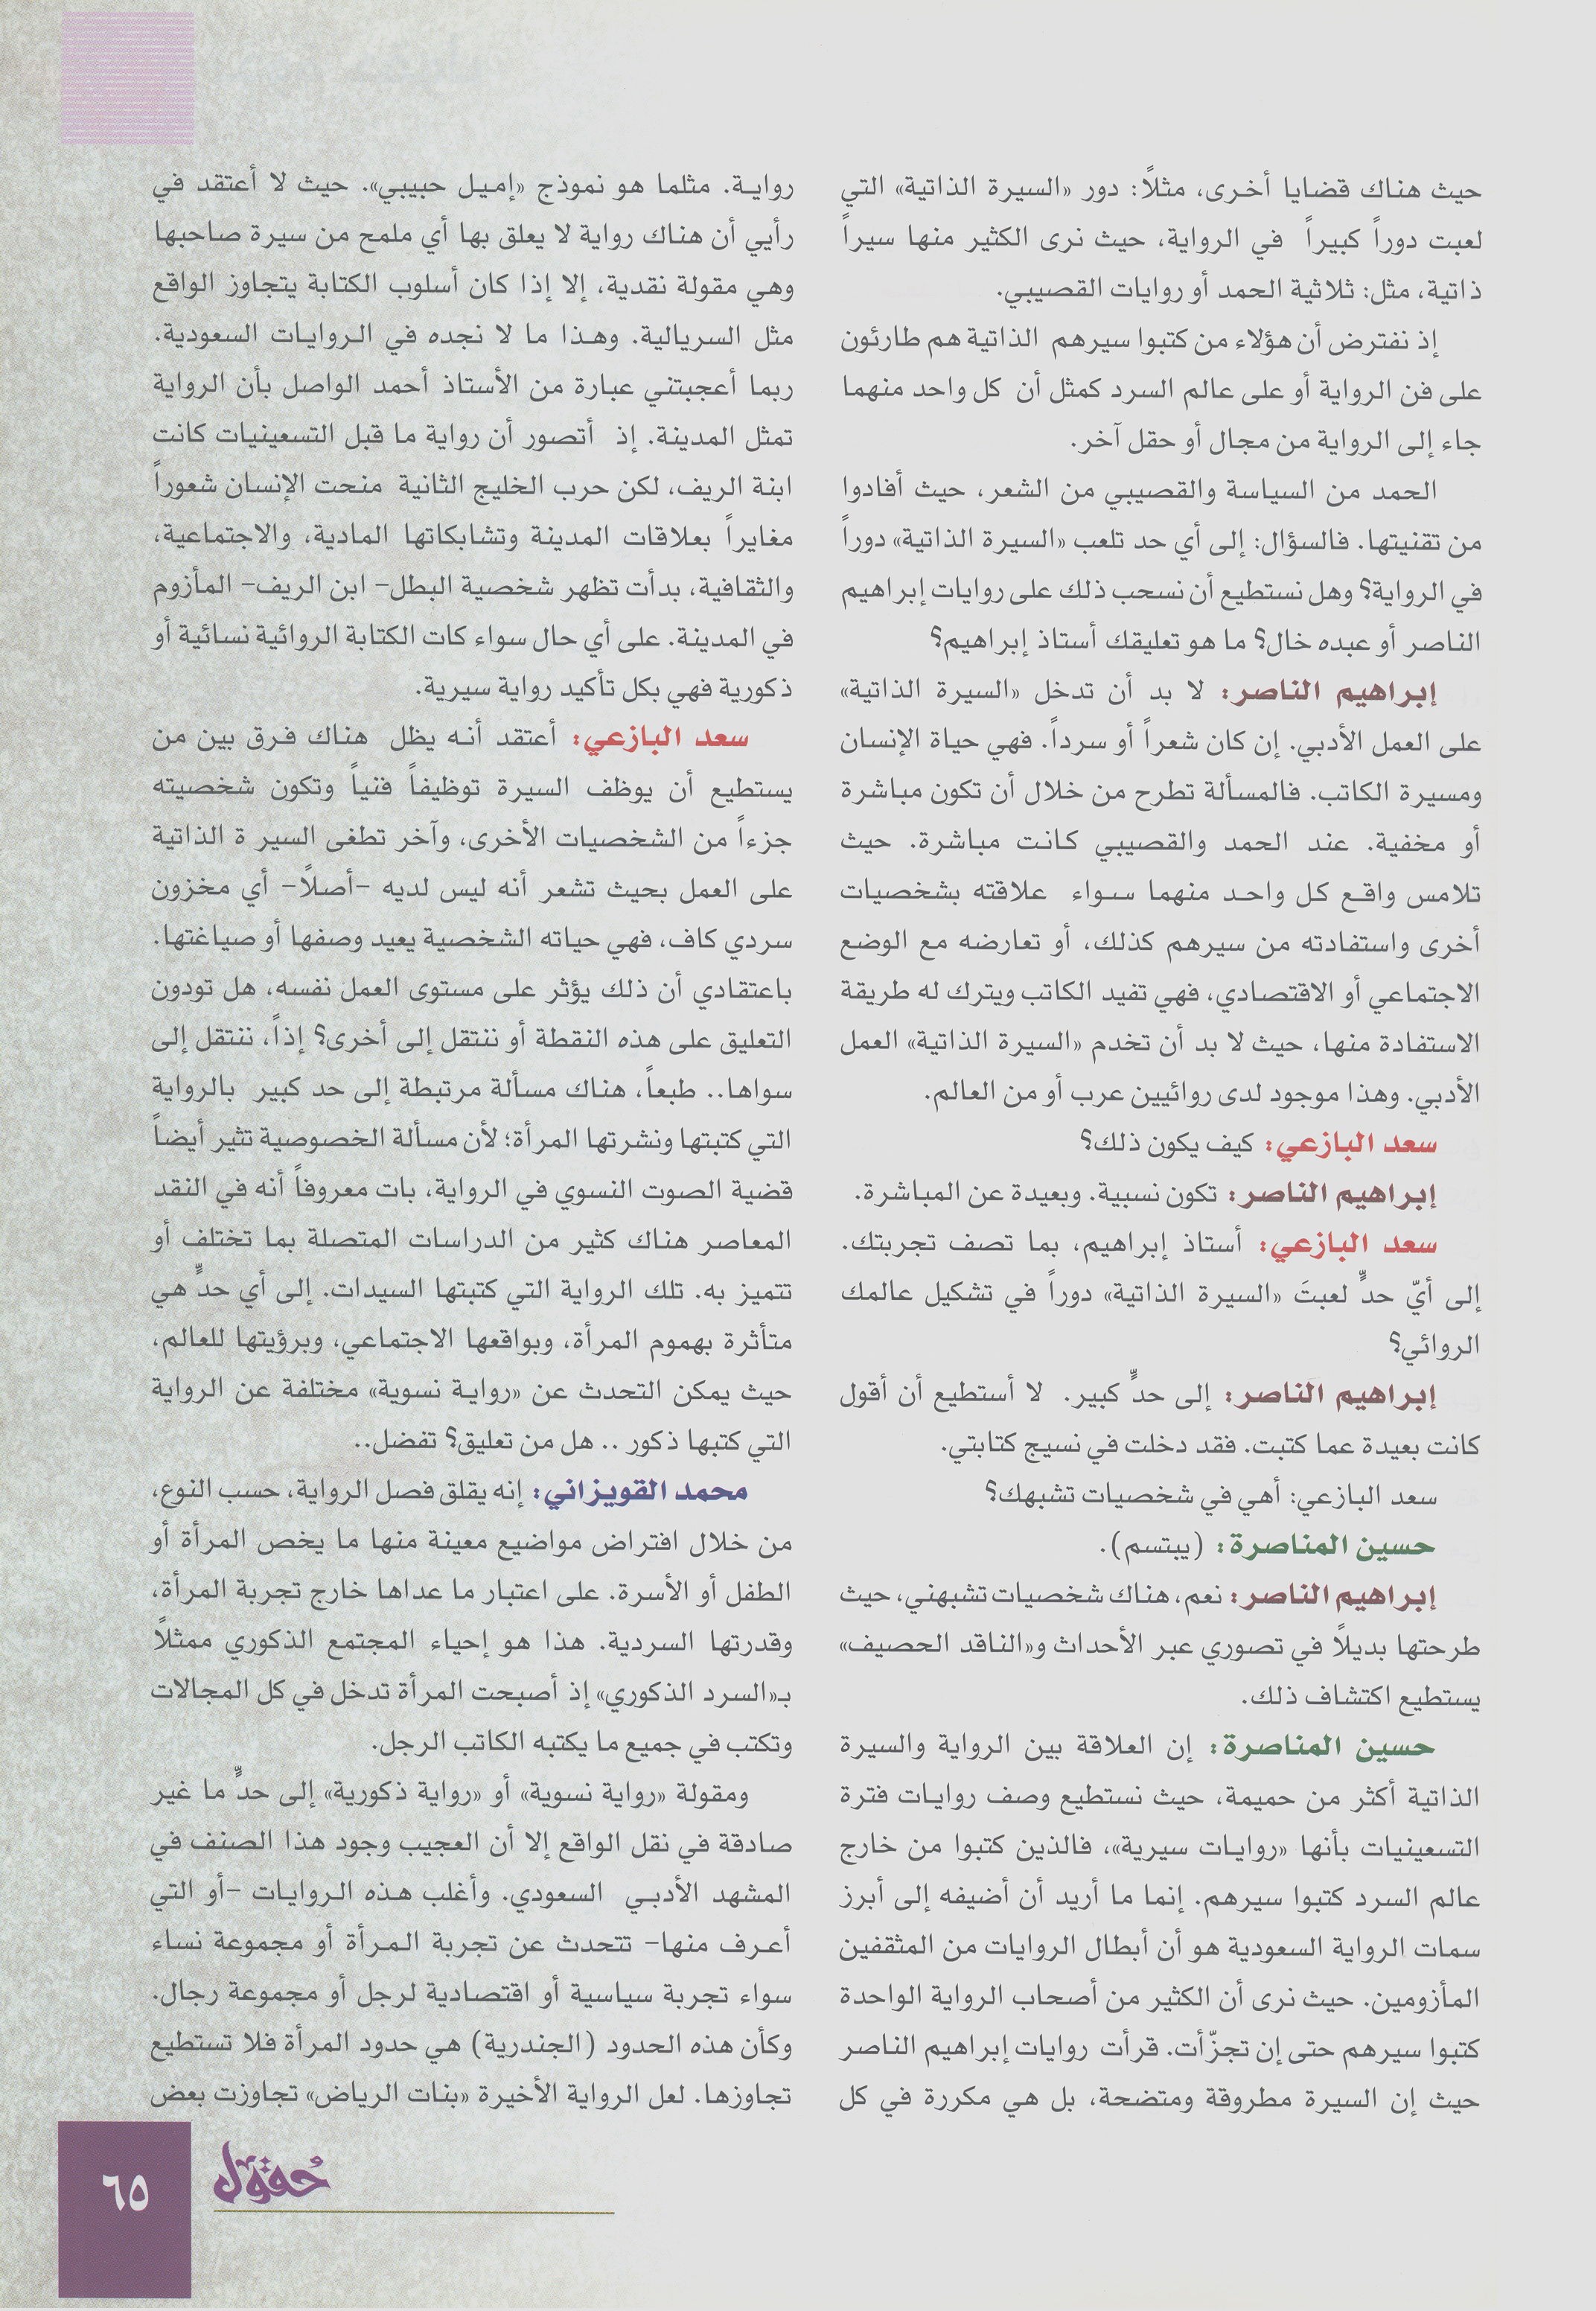 حيث هناك قضايا أخرى، مثلاً: دور «السيرة الذاتية» التي
لعبت دوراً كبيراً في الرواية، حيث نرى الكثير منها سيراً
ذاتية، مثل: ثلاثية الحمد أو روايات القصيبي.
إذ نفترض أن هؤلاء من كتبوا سيرهم الذاتية هم طارئون
على فن الرواية أو على عالم السرد كمثل أن كل واحد منهما
جاء إلى الرواية من مجال أو حقل آخر.
الحمد من السياسة والقصيبي من الشعر، حيث أفادوا
من تقنيتها. فالسؤال: إلى أي حد تلعب «السيرة الذاتية» دوراً
في الرواية؟ وهل نستطيع أن نسحب ذلك على روايات إبراهيم
الناصر أو عبده خال؟ ما هو تعليقك أستاذ إبراهيم؟
إبراهيم الناصر: لا بد أن تدخل «السيرة الذاتية»
على العمل الأدبي. إن كان شعراً أو سرداً. فهي حياة الإنسان
ومسيرة الكاتب. فالمسألة تطرح من خلال أن تكون مباشرة
أو مخفية. عند الحمد والقصيبي كانت مباشرة. حيث
تلامس واقع كل واحد منهما سواء علاقته بشخصيات
أخرى واستفادته من سيرهم كذلك، أو تعارضه مع الوضع
الاجتماعي أو الاقتصادي، فهي تفيد الكاتب ويترك له طريقة
الاستفادة منها، حيث لا بد أن تخدم «السيرة الذاتية» العمل
الأدبي. وهذا موجود لدى روائيين عرب أو من العالم.
سعد البازعي: كيف يكون ذلك؟
إبراهيم الناصر: تكون نسبية. وبعيدة عن المباشرة.
سعد البازعي: أستاذ إبراهيم، بما تصف تجربتك.
إلى أيّ حدٍّ لعبتَ «السيرة الذاتية» دوراً في تشكيل عالمك
الروائي؟
إبراهيم الناصر: إلى حدٍّ كبير. لا أستطيع أن أقول
كانت بعيدة عما كتبت. فقد دخلت في نسيج كتابتي.
سعد البازعي: أهي في شخصيات تشبهك؟
حسين المناصرة: (يبتسم).
إبراهيم الناصر: نعم، هناك شخصيات تشبهني، حيث
طرحتها بديلاً في تصوري عبر الأحداث و«الناقد الحصيف»
يستطيع اكتشاف ذلك.
حسين المناصرة: إن العلاقة بين الرواية والسيرة
الذاتية أكثر من حميمة، حيث نستطيع وصف روايات فترة
التسعينيات بأنها «روايات سيرية»، فالذين كتبوا من خارج
عالم السرد كتبوا سيرهم. إنما ما أريد أن أضيفه إلى أبرز
سمات الرواية السعودية هو أن أبطال الروايات من المثقفين
المأزومين. حيث نرى أن الكثير من أصحاب الرواية الواحدة
كتبوا سيرهم حتى إن تجزّأت. قرأت روايات إبراهيم الناصر
حيث إن السيرة مطروقة ومتضحة، بل هي مكررة في كل
رواية. مثلما هو نموذج «إميل حبيبي». حيث لا أعتقد في
رأيي أن هناك رواية لا يعلق بها أي ملمح من سيرة صاحبها
وهي مقولة نقدية، إلا إذا كان أسلوب الكتابة يتجاوز الواقع
مثل السريالية. وهذا ما لا نجده في الروايات السعودية.
ربما أعجبتني عبارة من الأستاذ أحمد الواصل بأن الرواية
تمثل المدينة. إذ أتصور أن رواية ما قبل التسعينيات كانت
ابنة الريف، لكن حرب الخليج الثانية منحت الإنسان شعوراً
مغايراً بعلاقات المدينة وتشابكاتها المادية، والاجتماعية،
والثقافية، بدأت تظهر شخصية البطل- ابن الريف- المأزوم
في المدينة. على أي حال سواء كات الكتابة الروائية نسائية أو
ذكورية فهي بكل تأكيد رواية سيرية.
سعد البازعي: أعتقد أنه يظل هناك فرق بين من
يستطيع أن يوظف السيرة توظيفاً فنياً وتكون شخصيته
جزءاً من الشخصيات الأخرى، وآخر تطغى السير ة الذاتية
على العمل بحيث تشعر أنه ليس لديه -أصلاً- أي مخزون
سردي كاف، فهي حياته الشخصية يعيد وصفها أو صياغتها.
باعتقادي أن ذلك يؤثر على مستوى العمل نفسه، هل تودون
التعليق على هذه النقطة أو ننتقل إلى أخرى؟ إذاً، ننتقل إلى
سواها.. طبعاً، هناك مسألة مرتبطة إلى حد كبير بالرواية
التي كتبتها ونشرتها المرأة؛ لأن مسألة الخصوصية تثير أيضاً
قضية الصوت النسوي في الرواية، بات معروفاً أنه في النقد
المعاصر هناك كثير من الدراسات المتصلة بما تختلف أو
تتميز به. تلك الرواية التي كتبتها السيدات. إلى أي حدٍّ هي
متأثرة بهموم المرأة، وبواقعها الاجتماعي، وبرؤيتها للعالم،
حيث يمكن التحدث عن «رواية نسوية» مختلفة عن الرواية
التي كتبها ذكور .. هل من تعليق؟ تفضل..
محمد القويزاني: إنه يقلق فصل الرواية، حسب النوع،
من خلال افتراض مواضيع معينة منها ما يخص المرأة أو
الطفل أو الأسرة. على اعتبار ما عداها خارج تجربة المرأة،
وقدرتها السردية. هذا هو إحياء المجتمع الذكوري ممثلاً
بـ«السرد الذكوري» إذ أصبحت المرأة تدخل في كل المجالات
وتكتب في جميع ما يكتبه الكاتب الرجل.
ومقولة «رواية نسوية» أو «رواية ذكورية» إلى حدٍّ ما غير
صادقة في نقل الواقع إلا أن العجيب وجود هذا الصنف في
المشهد الأدبي السعودي. وأغلب هذه الروايات -أو التي
أعرف منها- تتحدث عن تجربة المرأة أو مجموعة نساء
سواء تجربة سياسية أو اقتصادية لرجل أو مجموعة رجال.
وكأن هذه الحدود (الجندرية) هي حدود المرأة فلا تستطيع
تجاوزها. لعل الرواية الأخيرة «بنات الرياض» تجاوزت بعض
حُقول
٦٥